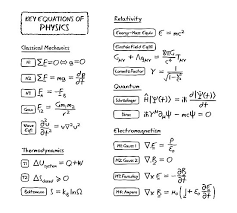 KEY EQUATIONS OF
PHYSICS
Classical Mechanics
N1 Σ F = 0 ⇔ a = 0
N2 Σ F = ma = dp/dt
Grav F₁₂ = G m₁m₂ / r²
Wave Calc ü = v²∇²u
Thermodynamics
T1 ΔU system = Q + W
T2 ΔS closed ≥ 0
Boltzmann S = k_B ln Ω
Relativity
Energy-Mass Equiv E = mc²
Einstein Field Eqn
Lorentz Factor
Quantum
Schrödinger Ĥ|Ψ(t)⟩ = iħ d|Ψ(t)⟩/dt
Dirac iħγ^μ∂_μψ − mcψ = 0
Electromagnetism
M1: Gauss 1 ∇·E = ρ/ε₀
M2: Gauss 2 ∇·B = 0
M3: Faraday ∇×E = −∂B/∂t
M4: Ampere ∇×B = μ₀(J + ε₀ ∂E/∂t)